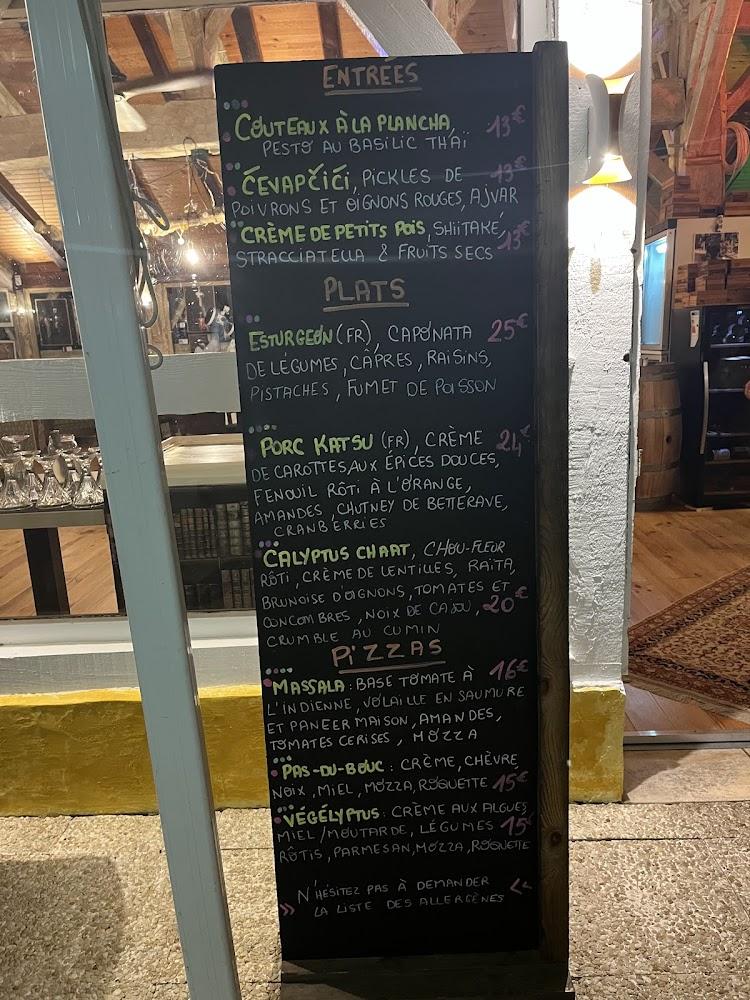 ENTRÉES
COUTEAUX À LA PLANCHA, 13€
PESTO AU BASILIC THAÏ
ČEVAPČIČI, PICKLES DE 13€
POIVRONS ET OIGNONS ROUGES, AJVAR
CRÈME DE PETITS POIS, SHIITAKÉ,
STRACCIATELLA & FRUITS SECS 13€
PLATS
ESTURGEON (FR), CAPONATA 25€
DE LÉGUMES, CÂPRES, RAISINS,
PISTACHES, FUMET DE POISSON
PORC KATSU (FR), CRÈME 24€
DE CAROTTES AUX ÉPICES DOUCES,
FENOUIL RÔTI À L'ORANGE,
AMANDES, CHUTNEY DE BETTERAVE,
CRANBERRIES
CALYPTUS CHAAT, CHOU-FLEUR
RÔTI, CRÈME DE LENTILLES, RAÏTA,
BRUNOISE D'OIGNONS, TOMATES ET
CONCOMBRES, NOIX DE CAJOU, 20€
CRUMBLE AU CUMIN
PIZZAS
MASSALA : BASE TOMATE À 16€
L'INDIENNE, VOLAILLE EN SAUMURE
ET PANEER MAISON, AMANDES,
TOMATES CERISES, MOZZA
PAS-DU-BOUC : CRÈME, CHÈVRE,
NOIX, MIEL, MOZZA, ROQUETTE 15€
VÉGÉLYPTUS : CRÈME AUX ALGUES,
MIEL/MOUTARDE, LÉGUMES 15€
RÔTIS, PARMESAN, MOZZA, ROQUETTE
N'HÉSITEZ PAS À DEMANDER
LA LISTE DES ALLERGÈNES